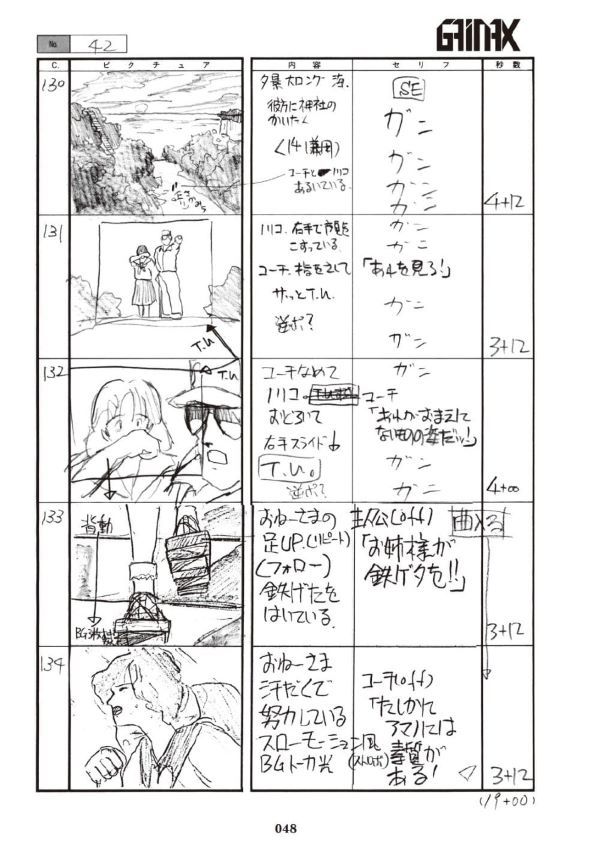 GAINAX
No. 42
C. ピクチュア 内容 セリフ 秒数
130
夕景 大ロング 海.
彼方に神社の
かいだん
(141兼用)
コーチと川コ
あるいている.
SE
ガニ
ガニ
ガニ
ガニ
4+12
131
川コ. 右手で
こすっている
コーチ. 指をさして
サッとT.U.
逆ポ?
T.U
ガニ
ガニ
「あれを見ろ!」
ガニ
ガニ
3+12
132
T.U
コーチなめて
川コ.
おどろいて
右手スライド↓
T.U.
逆ポ?
ガニ
コーチ
「あれがおまえに
ないものの姿だッ!」
ガニ
ガニ
4+00
133
背動
おねーさまの
足UP.(リピート)
(フォロー)
鉄げたを
はいている.
(off)
曲入る
「お姉様が
鉄ゲタを!!」
3+12
134
おねーさま
汗だくで
努力している
スローモーション風
(ストロボ)
BGトーカ光
コーチ(off)
「たしかに
アマノには
素質が
ある!
3+12
(19+00)
048